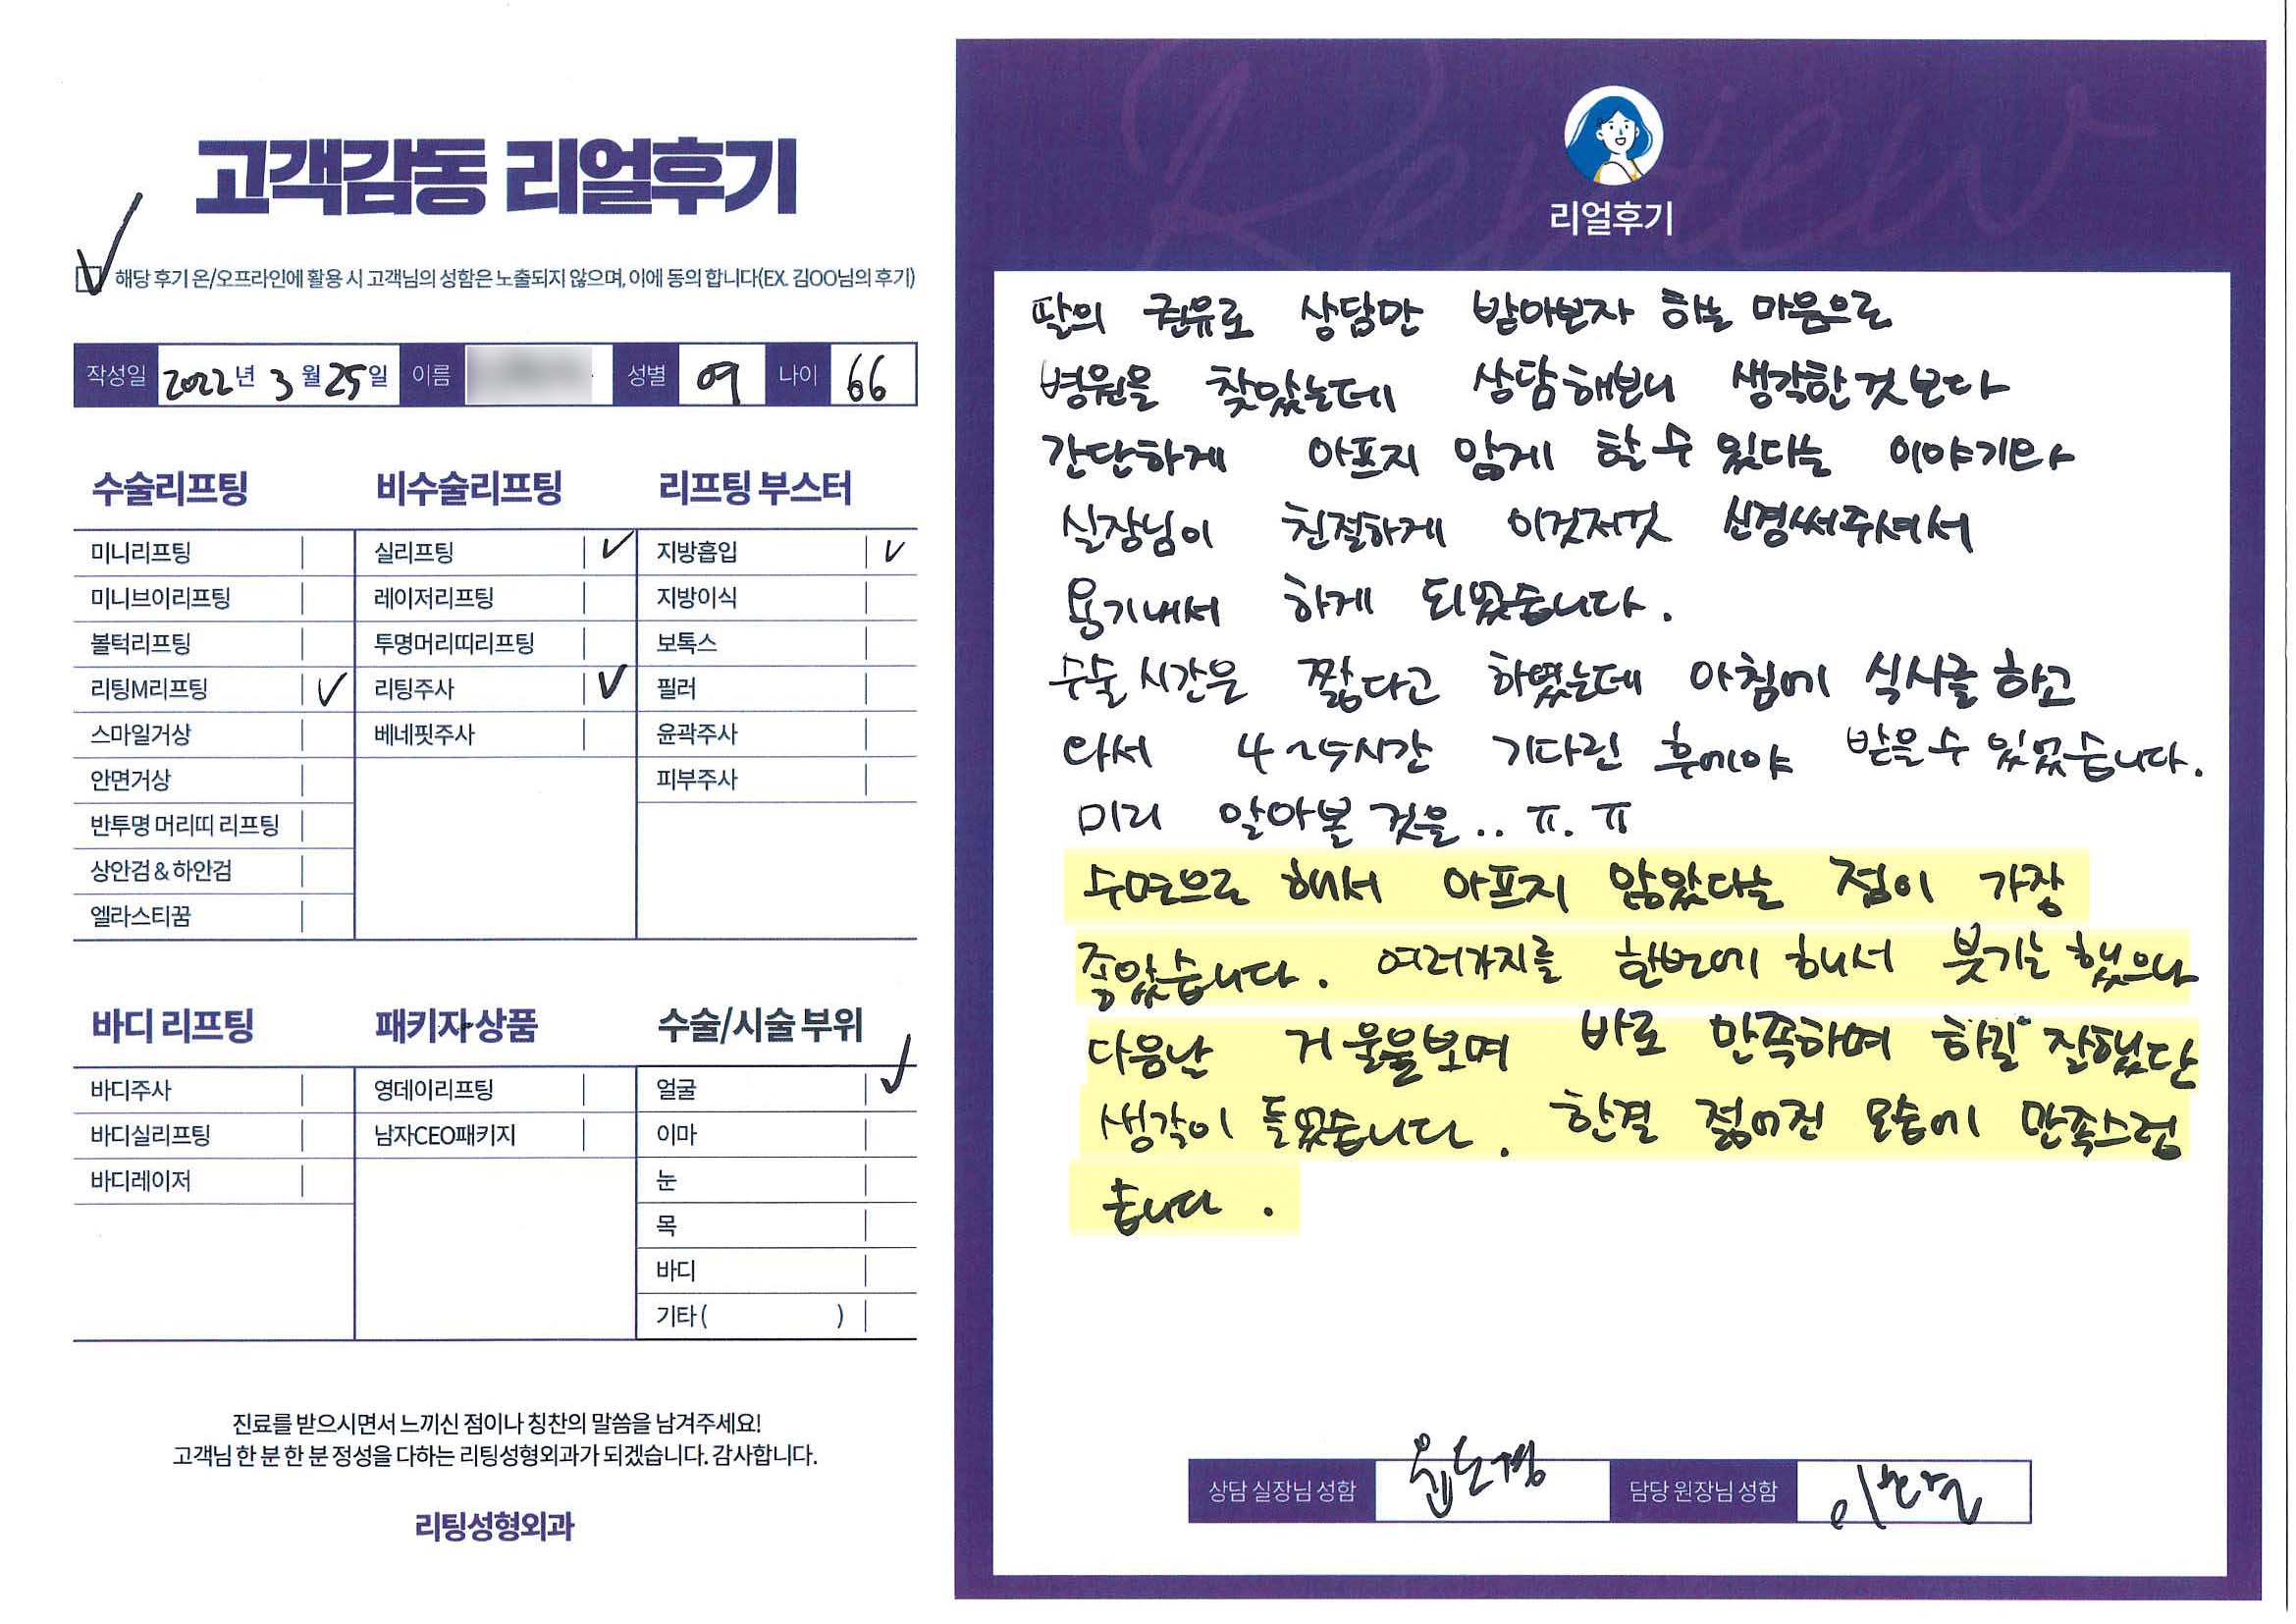 고객감동 리얼후기
해당 후기 온/오프라인에 활용 시 고객님의 성함은 노출되지 않으며, 이에 동의 합니다(EX. 김OO님의 후기)
작성일 2022년 3월 25일 이름 성별 여 나이 66
수술리프팅
미니리프팅
미니브이리프팅
볼턱리프팅
리팅M리프팅 ✓
스마일거상
안면거상
반투명 머리띠 리프팅
상안검 & 하안검
엘라스티꿈
비수술리프팅
실리프팅 ✓
레이저리프팅
투명머리띠리프팅
리팅주사 ✓
베네핏주사
리프팅 부스터
지방흡입 ✓
지방이식
보톡스
필러
윤곽주사
피부주사
바디 리프팅
바디주사
바디실리프팅
바디레이저
패키지상품
영데이리프팅
남자CEO패키지
수술/시술 부위
얼굴 ✓
이마
눈
목
바디
기타 ( )
진료를 받으시면서 느끼신 점이나 칭찬의 말씀을 남겨주세요!
고객님 한 분 한 분 정성을 다하는 리팅성형외과가 되겠습니다. 감사합니다.
리팅성형외과
Review
리얼후기
딸의 권유로 상담만 받아보자 하는 마음으로
병원을 찾았는데 상담해보니 생각한것보다
간단하게 아프지 않게 할 수 있다는 이야기와
실장님이 친절하게 이것저것 신경써주셔서
용기내서 하게 되었습니다.
수술 시간은 짧다고 하였는데 아침에 식사를 하고
와서 4~5시간 기다린 후에야 받을 수 있었습니다.
미리 알아볼 것을.. ㅠ.ㅠ
수면으로 해서 아프지 않았다는 점이 가장
좋았습니다. 여러가지를 한번에 해서 붓기는 했으나
다음날 거울을보며 바로 만족하며 하길 잘했단
생각이 들었습니다. 한결 젊어진 모습에 만족스럽
습니다.
상담 실장님 성함
담당 원장님 성함